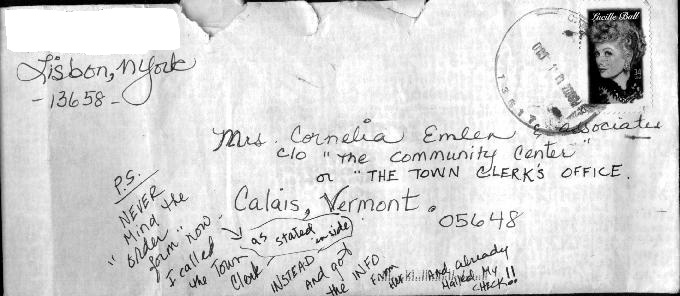 Lisbon, NYork
- 13658 -
Lucille Ball
34
Mrs. Cornelia Emlen & associates
c/o "The Community Center"
or "THE TOWN CLERK'S OFFICE.
Calais, Vermont.
05648
P.S.
NEVER
Mind the
"order
form" now.
I called
the Town
Clerk
as stated inside
INSTEAD
AND got
the INFO
From
And already
Mailed My
CHECK!!